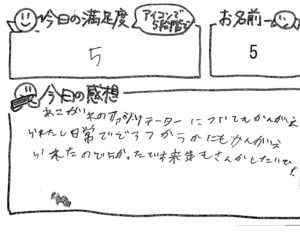 今日の満足度
アイコンで
5段階で
お名前
5
5
今日の感想
あこがれのファシリテーターについてもかんがえ
られたし日常でどうつかうかにもかんがえ
られたのでよかったです来年もさんかしたいです